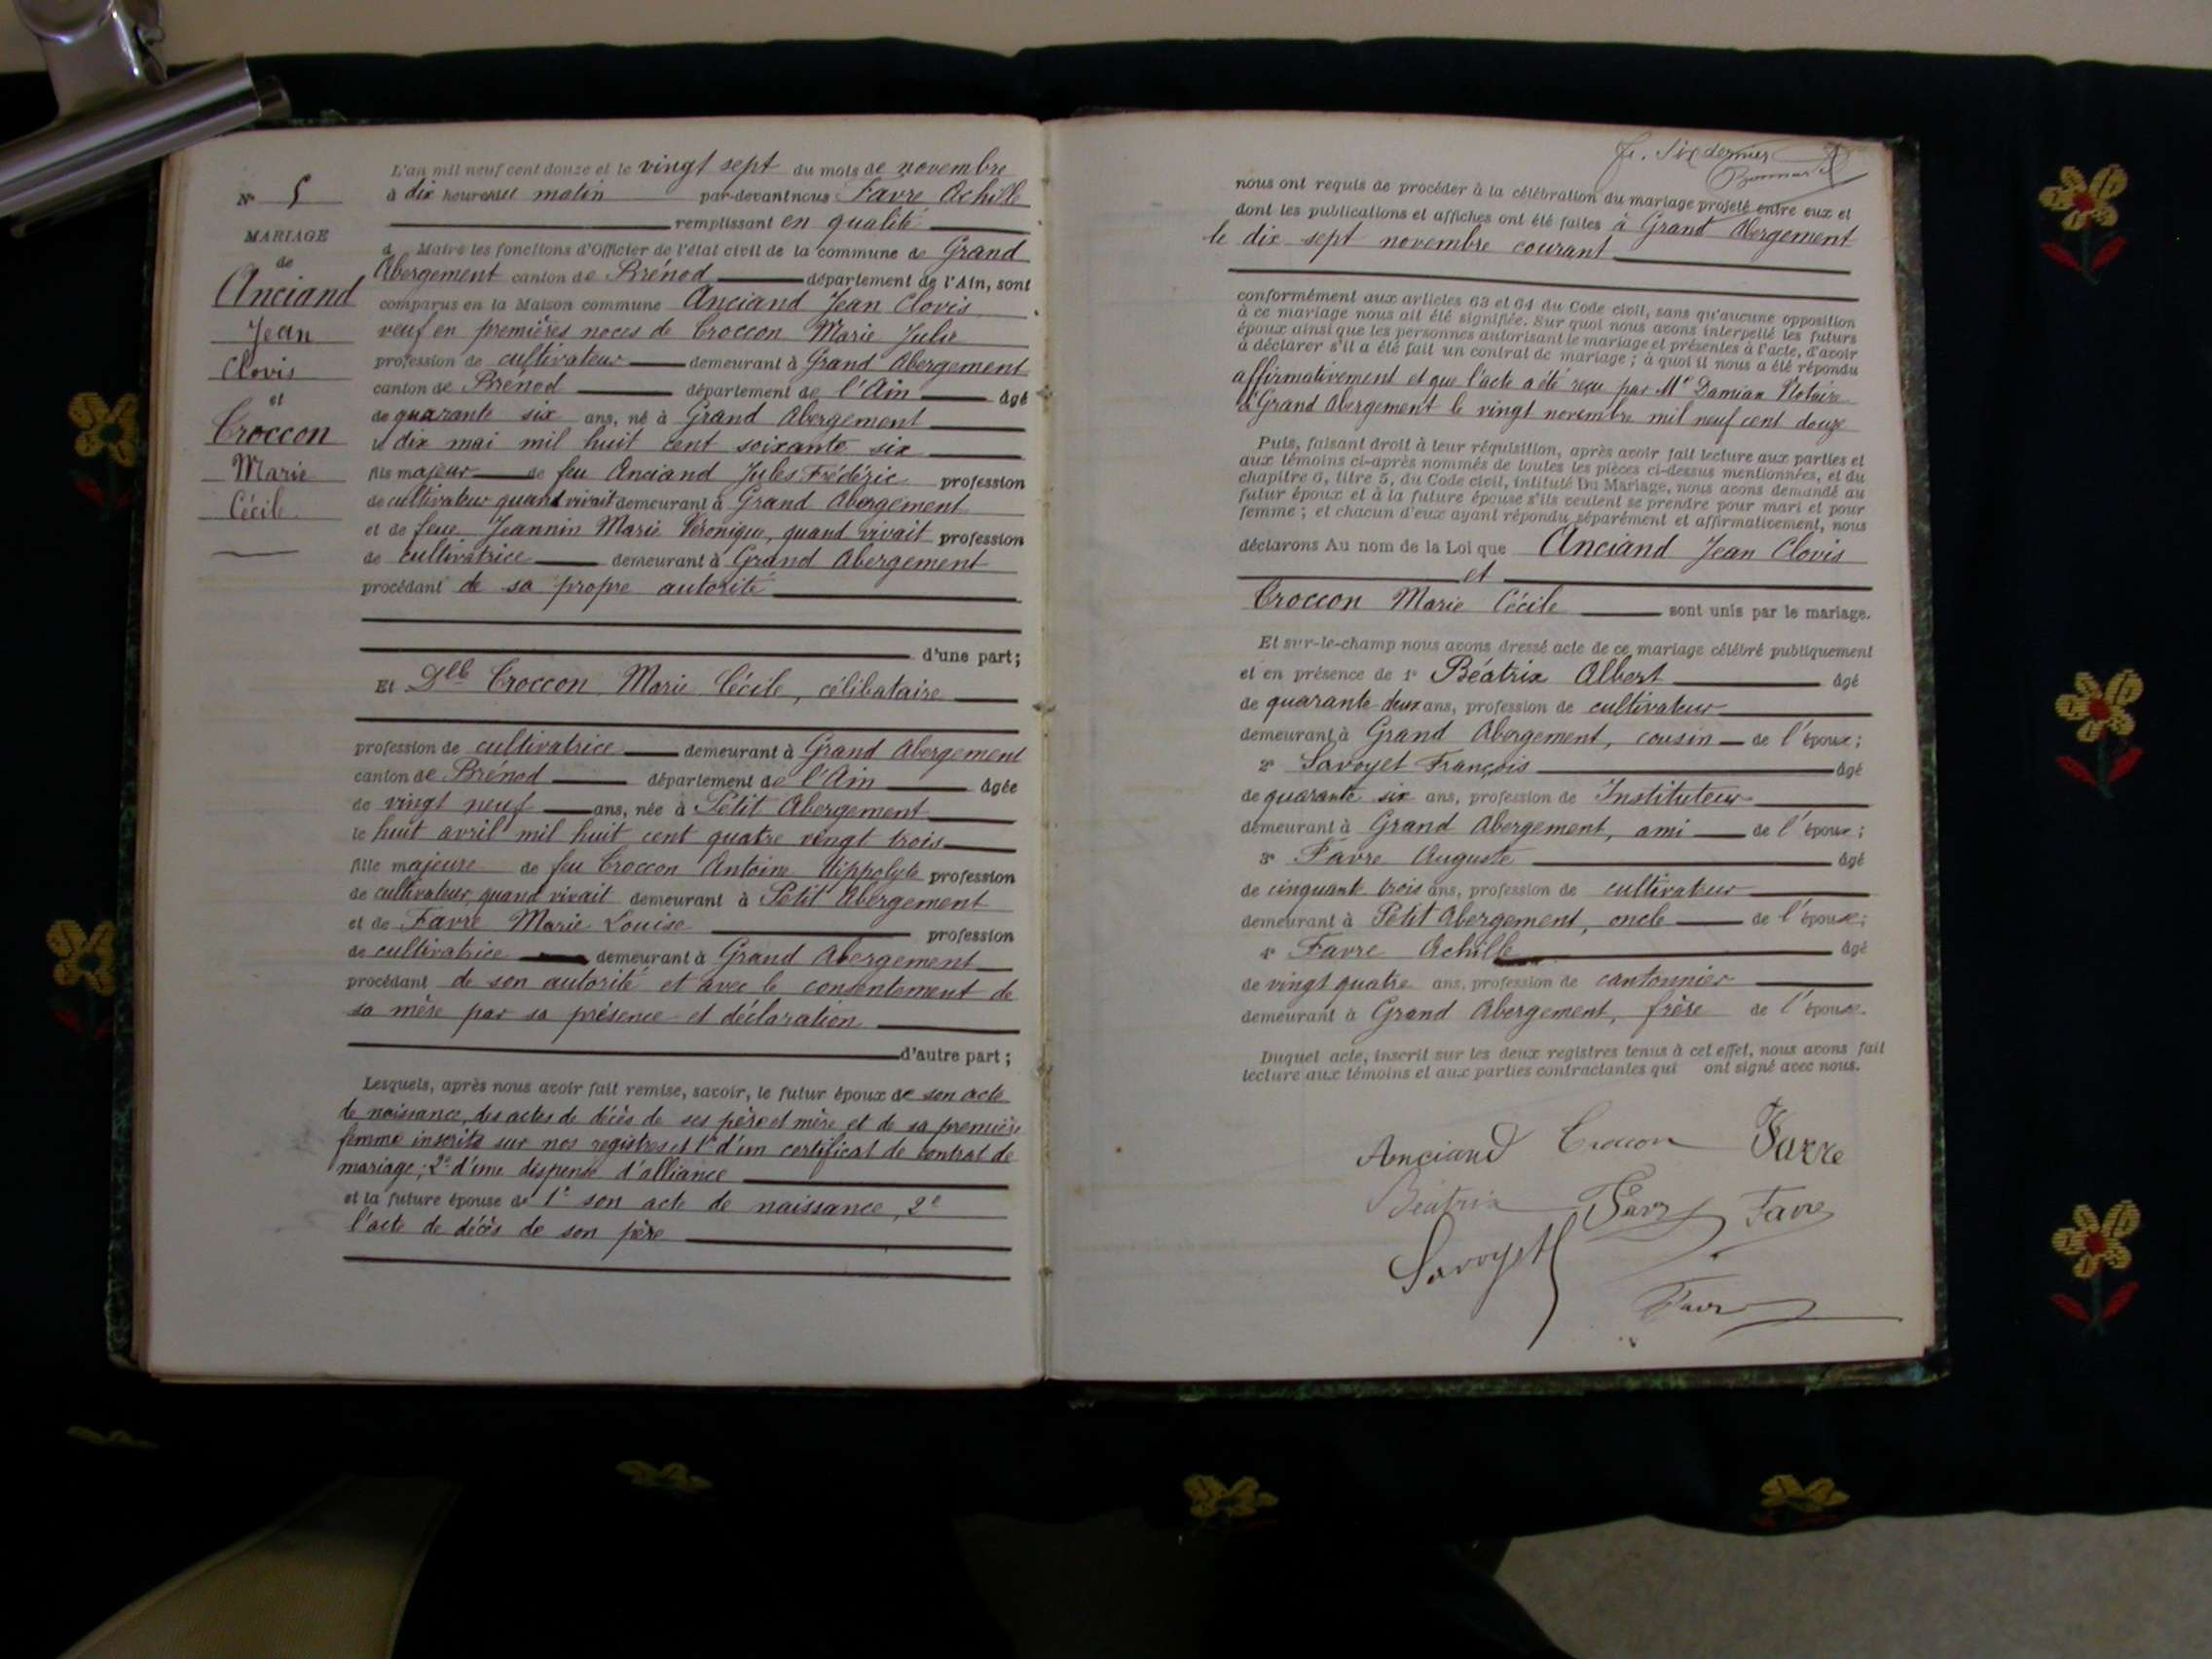 N° 5
MARIAGE
de
Anciand
Jean
Clovis
et
Croccon
Marie
Cécile
L'an mil neuf cent douze et le vingt sept du mois de novembre
à dix heures du matin par-devant nous Favre Achille
remplissant en qualité
d Maire les fonctions d'Officier de l'état civil de la commune de Grand
Abergement canton de Brénod département de l'Ain, sont
comparus en la Maison commune Anciand Jean Clovis
veuf en premières noces de Croccon Marie Julie
profession de cultivateur demeurant à Grand Abergement
canton de Brenod département de l'Ain âgé
de quarante six ans, né à Grand Abergement
le dix mai mil huit cent soixante six
fils majeur de feu Anciand Jules Frédéric profession
de cultivateur quand vivait demeurant à Grand Abergement
et de feue Jeannin Marie Véronique, quand vivait profession
de cultivatrice demeurant à Grand Abergement
procédant de sa propre autorité
d'une part;
Et Dlle Croccon Marie Cécile, célibataire
profession de cultivatrice demeurant à Grand Abergement
canton de Brénod département de l'Ain âgée
de vingt neuf ans, née à Petit Abergement
le huit avril mil huit cent quatre vingt trois
fille majeure de feu Croccon Antoine Hippolyte profession
de cultivateur, quand vivait demeurant à Petit Abergement
et de Favre Marie Louise profession
de cultivatrice demeurant à Grand Abergement
procédant de son autorité et avec le consentement de
sa mère par sa présence et déclaration
d'autre part;
Lesquels, après nous avoir fait remise, savoir, le futur époux de son acte
de naissance, des actes de décès de ses père et mère et de sa première
femme inscrits sur nos registres et 1° d'un certificat de contrat de
mariage; 2° d'une dispense d'alliance
et la future épouse de 1° son acte de naissance, 2°
l'acte de décès de son père
nous ont requis de procéder à la célébration du mariage projeté entre eux et
dont les publications et affiches ont été faites à Grand Abergement
le dix sept novembre courant
conformément aux articles 63 et 64 du Code civil, sans qu'aucune opposition
à ce mariage nous ait été signifiée. Sur quoi nous avons interpellé les futurs
époux ainsi que les personnes autorisant le mariage et présentes à l'acte, d'avoir
à déclarer s'il a été fait un contrat de mariage; à quoi il nous a été répondu
affirmativement et que l'acte a été reçu par Me Damian Notaire
à Grand Abergement le vingt novembre mil neuf cent douze
Puis, faisant droit à leur réquisition, après avoir fait lecture aux parties et
aux témoins ci-après nommés de toutes les pièces ci-dessus mentionnées, et du
chapitre 6, titre 5, du Code civil, intitulé Du Mariage, nous avons demandé au
futur époux et à la future épouse s'ils veulent se prendre pour mari et pour
femme; et chacun d'eux ayant répondu séparément et affirmativement, nous
déclarons Au nom de la Loi que Anciand Jean Clovis
et
Croccon Marie Cécile sont unis par le mariage.
Et sur-le-champ nous avons dressé acte de ce mariage célébré publiquement
et en présence de 1° Béatrix Albert âgé
de quarante deux ans, profession de cultivateur
demeurant à Grand Abergement, cousin de l'époux;
2° Savoyet François âgé
de quarante six ans, profession de Instituteur
demeurant à Grand Abergement, ami de l'époux;
3° Favre Auguste âgé
de cinquante trois ans, profession de cultivateur
demeurant à Petit Abergement, oncle de l'épouse;
4° Favre Achille âgé
de vingt quatre ans, profession de cantonnier
demeurant à Grand Abergement, frère de l'épouse.
Duquel acte, inscrit sur les deux registres tenus à cet effet, nous avons fait
lecture aux témoins et aux parties contractantes qui ont signé avec nous.
Anciand Croccon Favre
Béatrix Favre Favre
Savoyet
Favre